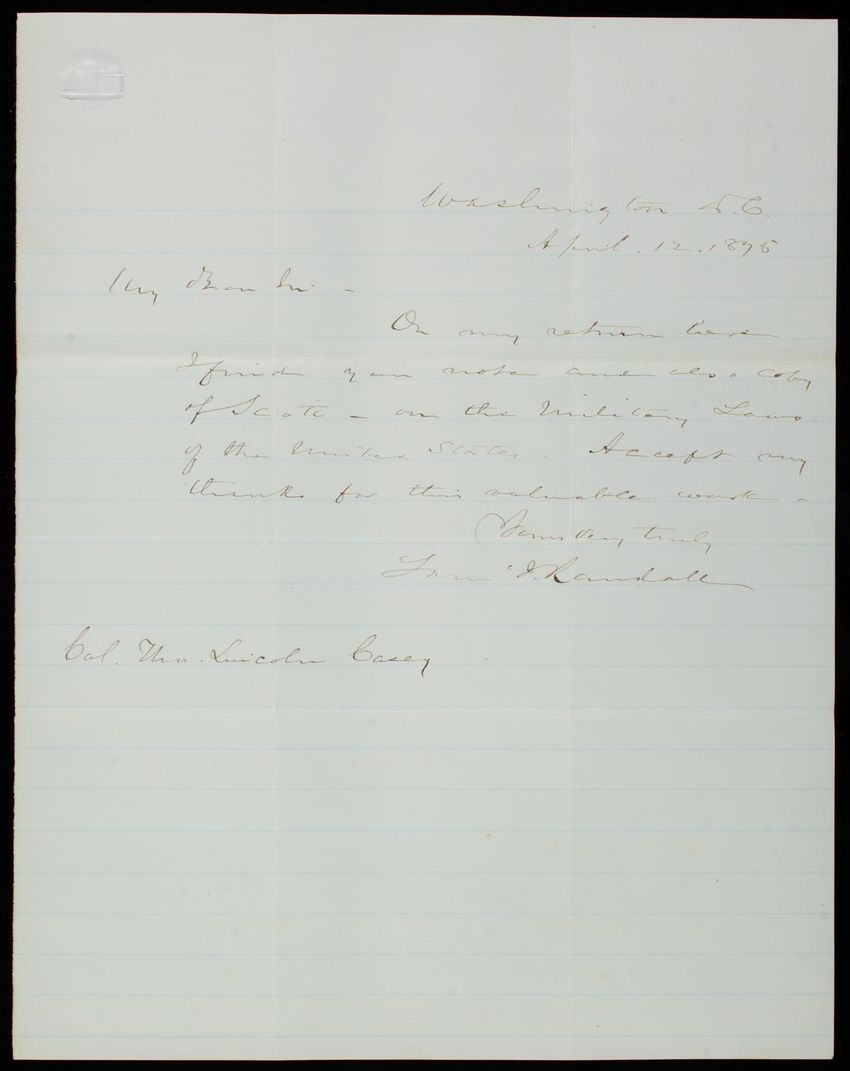 Washington D.C.
April. 12. 1875
My Dear Sir -
On my return here
I find your note and also a coby
of Scott - on the Military Laws
of the United States. Accept my
thanks for this valuable work -
Yours Very truly
Sam J. Randall
Col. Thos. Lincoln Casey